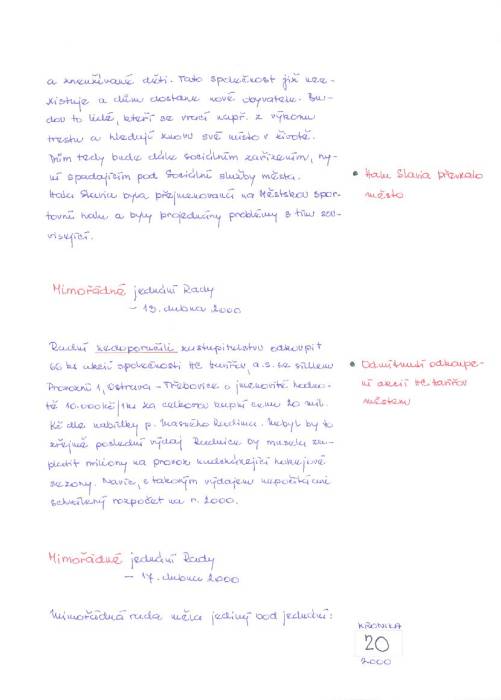 a zneužívané děti. Tato společnost již nee-
xistuje a dům dostane nové obyvatele. Bu-
dou to lidé, kteří se vrací např. z výkonu
trestu a hledají znovu své místo v životě.
Dům tedy bude dále sociálním zařízením, ny-
ní spadajícím pod Sociální služby města.
Hala Slavia byla přejmenována na Městskou spor-
tovní halu a byly projednány problémy s tím sou-
visející.
• Halu Slavia převzalo
město
Mimořádné jednání Rady
- 13. dubna 2000
Radní nedoporučili zastupitelstvu odkoupit
66 ks akcií společnosti HC Havířov, a.s. se sídlem
Provozní 1, Ostrava - Třebovice o jmenovité hodno-
tě 10.000 Kč/1ks za celkovou kupní cenu 20 mil.
Kč dle nabídky p. Radima. Nebyl by to
zřejmě poslední výdaj. Radnice by musela za-
platit miliony na provoz nadcházející hokejové
sezony. Navíc, s takovým výdajem nepočítá ani
schválený rozpočet na r. 2000.
• Odmítnutí odkoupe-
ní akcií HC Havířov
městem
Mimořádné jednání Rady
- 17. dubna 2000
Mimořádná rada měla jediný bod jednání:
KRONIKA
20
2000